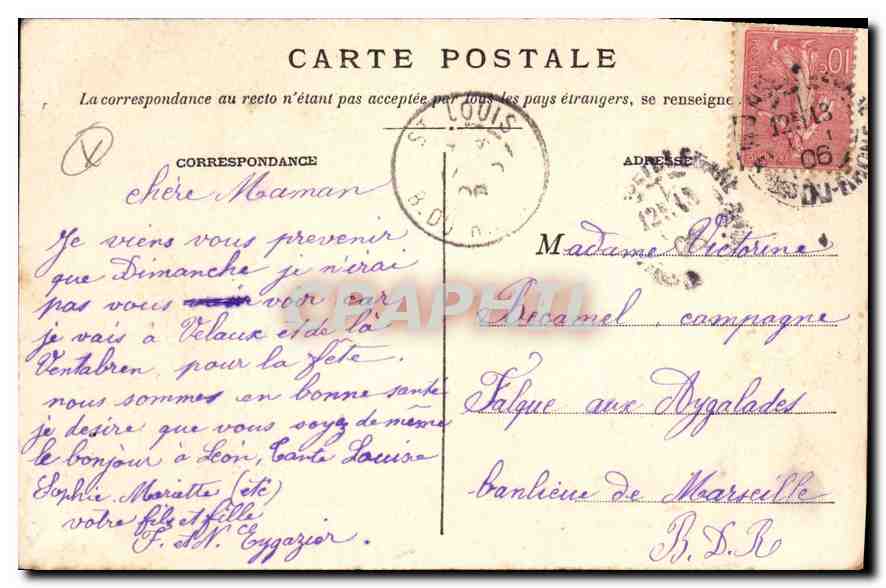 CARTE POSTALE
La correspondance au recto n'étant pas acceptée par tous les pays étrangers, se renseigne
CORRESPONDANCE
chère Maman
Je viens vous prevenir
que Dimanche je n'irai
pas vous voir car
je vais à Velaux et de là
Ventabren pour la fête.
nous sommes en bonne santé
je desire que vous soyez de même
le bonjour à Léon, Tante Louise
Sophie Mariette (etc)
votre fils et fille
F. et N. Eygazier.
ADRESSE
Madame Victorine
Decamel, campagne
Falque aux Aygalades
banlieue de Marseille
B. D. R
ST LOUIS
B. DU R
06
10
12 18
06
DU-RHONE
12 18
06
CPAPHIL